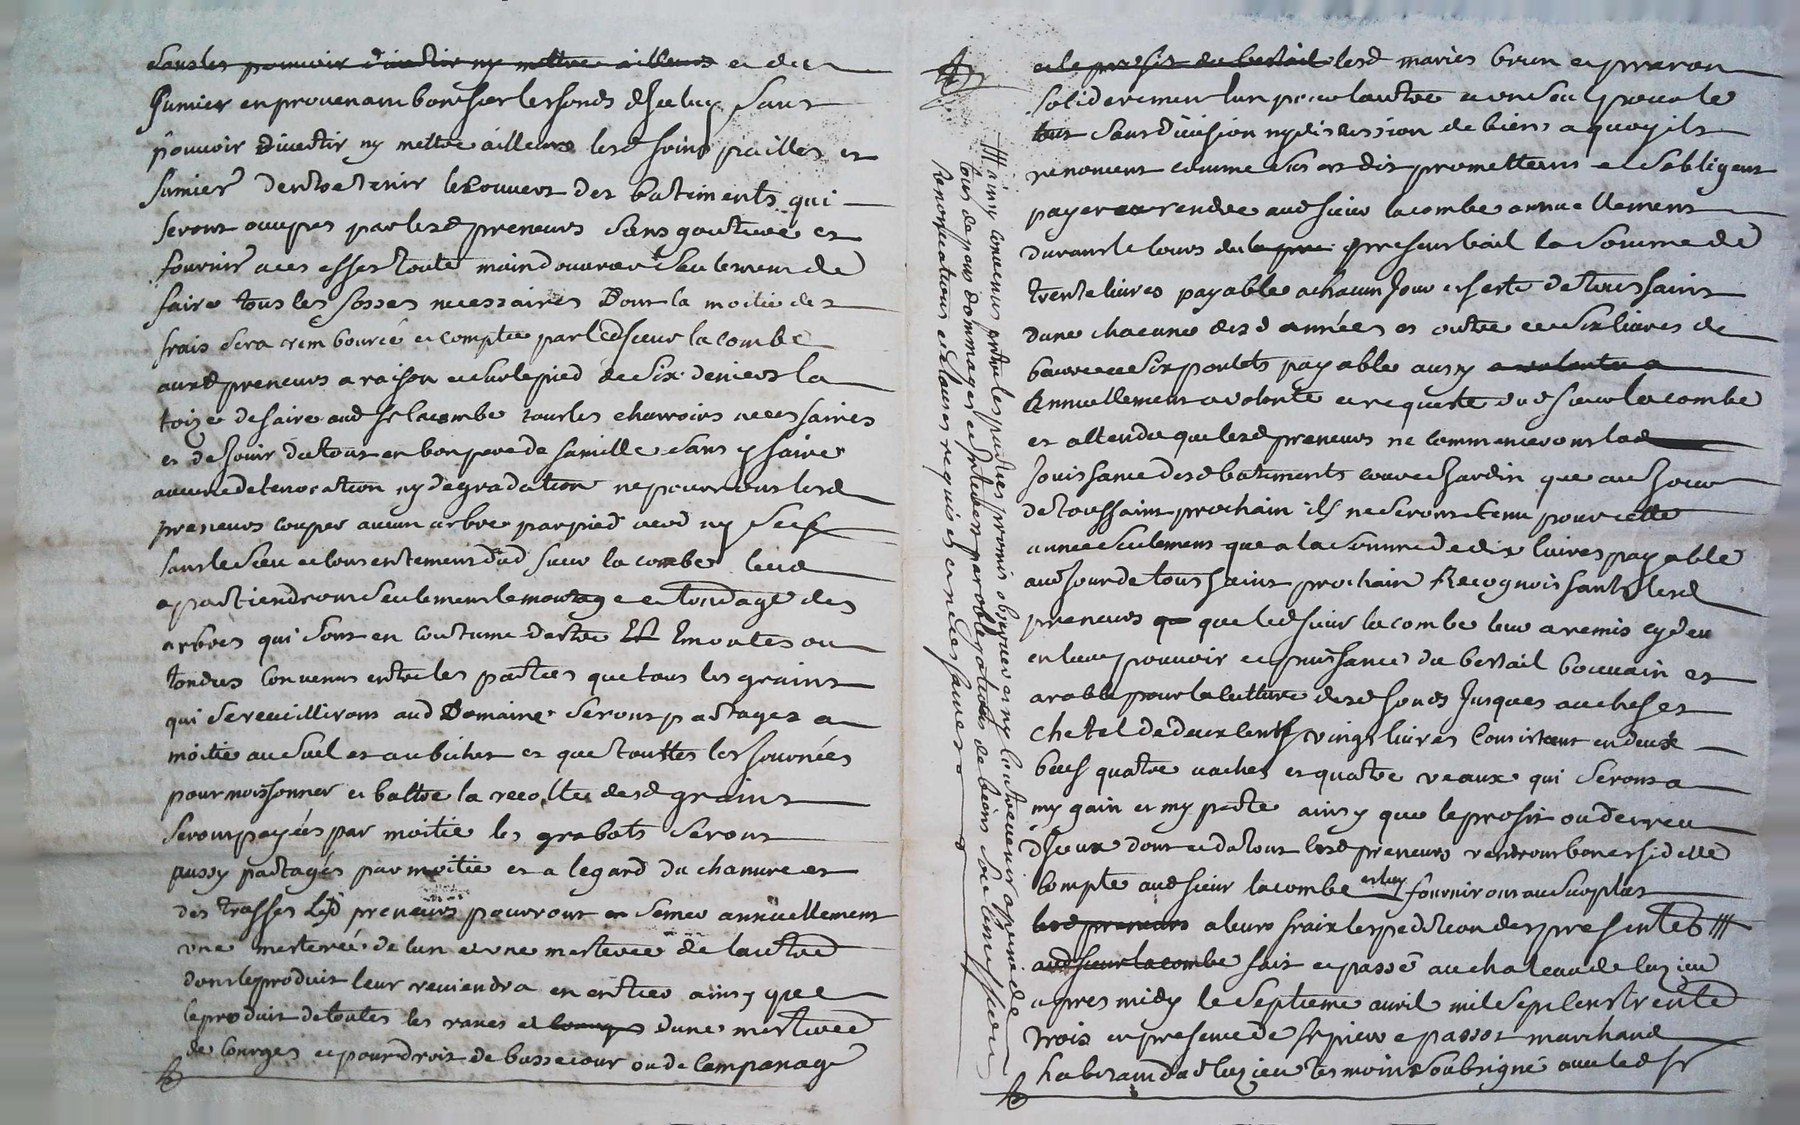 sans les pouvoir divertir ny mettre ailleurs et des
fumier en provenant bonifier les fonds diceluy sans
pouvoir divertir ny mettre ailleurs lesd foins pailles et
fumier dentretenir le couvert des batiments qui
seront occupes par lesd preneurs sans goutiere et
fournir a ces effet toute maindoeuvre seulement de
faire tous les fosses necessaires dont la moitie des
frais sera rembourcé et comptee par led sieur lacombe
auxd preneurs a raison et sur le pied de six deniers la
toize de faire aud sr lacombe tous les charroirs necessaires
et de jouir du tout en bon pere de famille sans y faire
aucune deterioration ny degradation ne pourront lesd
preneurs couper aucun arbre par pied verd ny secq
sans le sceu et consentement dud sieur la combe leur
apartiendront seulement le et tondage des
arbres qui sont en coutume destre Emontes ou
tondus convenus entre les parties que tous les grains
qui se recuillirons aud Domaine seront partages a
moitie au suel et au bichet et que touttes les journées
pour moissonner et battre la recolte desd grains
seront payées par moitie les grabots seront
aussy partagés par moitie et a legard du chanvre et
des trasses lesd preneurs pourront en semer annuellement
une mesterée de lun et une mesteree de lautre
dont le produit leur reviendra en entier ainsy que
le produit de toutes les raves et courges dune mesteree
de courges et pour droit de bassecour ou de campanage
# ainsy convenus entre les parties promis observer et ny contrevenir a peine de
tous depens dommages et interets par obligations de biens soumissions
renonciations et clauses requises et necessaires
et le profit du bestail lesd maries brun et
solidairement lun pour lautre et un seul pour le
tout sans division ny discussion de biens a quoy ils
renoncent comme sus est dit promettent et sobligent
payer et rendre aud sieur lacombe annuellement
durant le cours du present bail la somme de
trente livres payable a chacun jour et feste de toussaint
dune chacune desd années et outre ce six livres de
beurre et six poulets payable aussy a volonte a
Annuellement a volonte et requeste dud sieur lacombe
et attendu que lesd preneurs ne commenceront lad
jouissance desd batiments cour et jardin que au jour
de toussaint prochain ils ne seront tenu pour cette
annee seulement que a la somme de dix livres payable
aud jour de toussaint prochain Recognoissants lesd
preneurs que led sieur lacombe leur a remis cy devant
en leur pouvoir et puissance du bestail bouvain et
arable pour la culture desd fonds jusques au chef et
chetel de deux cents vingt livres consistant en deux
beufs quatre vaches et quatre veaux qui seront a
my gain et my perte ainsy que le profit
diceux dont et du tout lesd preneurs rendront bon et fidelle
compte aud sieur lacombe et luy fourniront au surplus
lesd preneurs a leurs fraix lexpedition des presentes #
aud sieur lacombe fait et passé au chateau de luzieu
apres midy le septieme avril mil sept cens trente
trois en presence de sr pierre passot marchand
habitant dud luzieu temoin soubsigné avec led sr